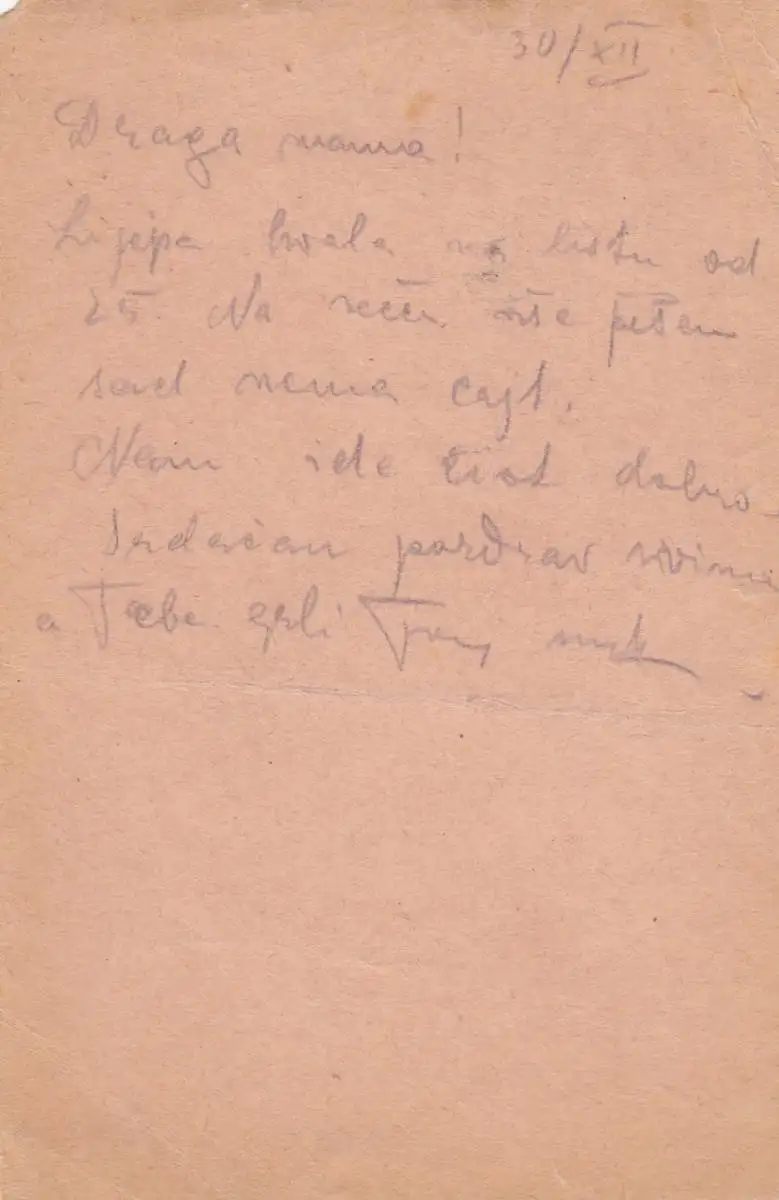 30/XII
Draga mama!
Lijepa hvala na listu od
25. Na veče više pišem
sad nema cajt.
Nam ide dobro
Srdačan pozdrav svima
a Tebe grli